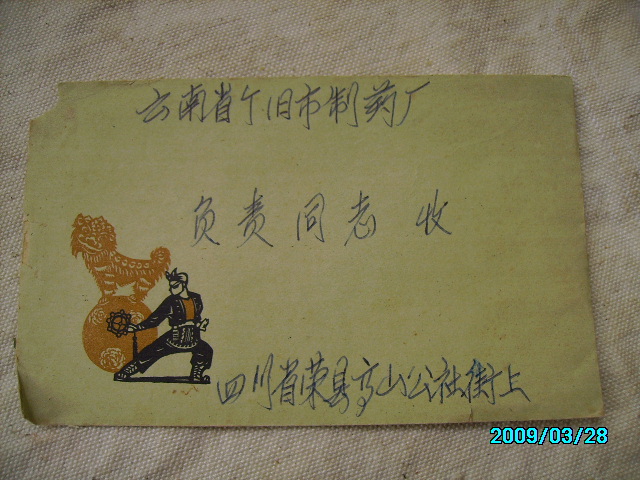 云南省个旧市制药厂
负责同志 收
四川省荣县高山公社街上
2009/03/28